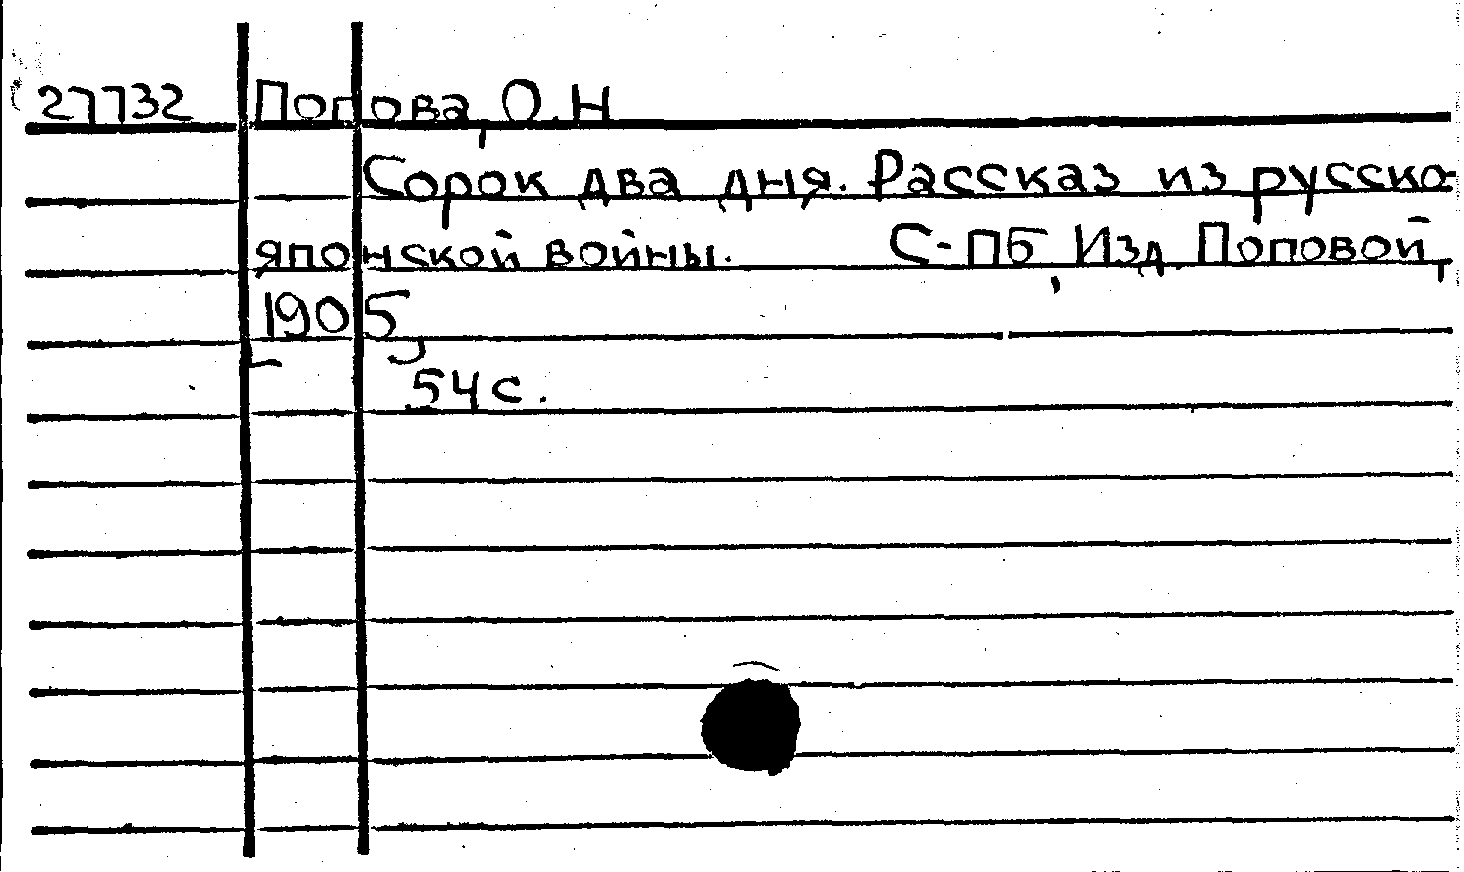 27732 Попова, О.Н
Сорок два дня. Рассказ из русско-
японской войны. С-ПБ, Изд Поповой,
1905,
54 с.